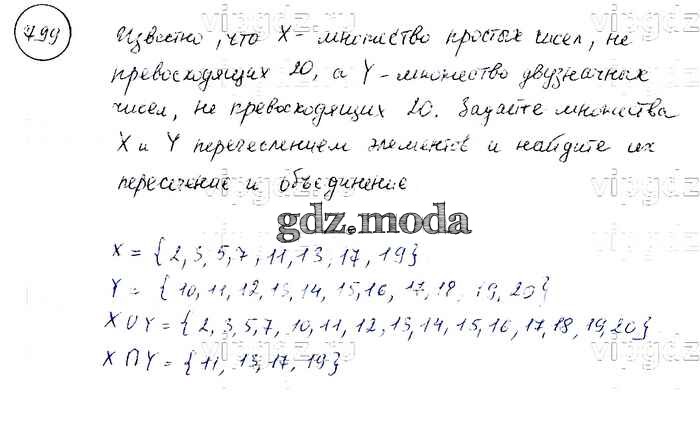 799
Известно, что X - множество простых чисел, не
превосходящих 20, а Y - множество двузначных
чисел, не превосходящих 20. Задайте множества
X и Y перечеслением элементов и найдите их
пересечение и объединение
gdz.moda
X = {2,3,5,7,11,13,17,19}
Y = {10,11,12,13,14,15,16,17,18,19,20}
X U Y = {2,3,5,7,10,11,12,13,14,15,16,17,18,19,20}
X ∩ Y = {11,13,17,19}